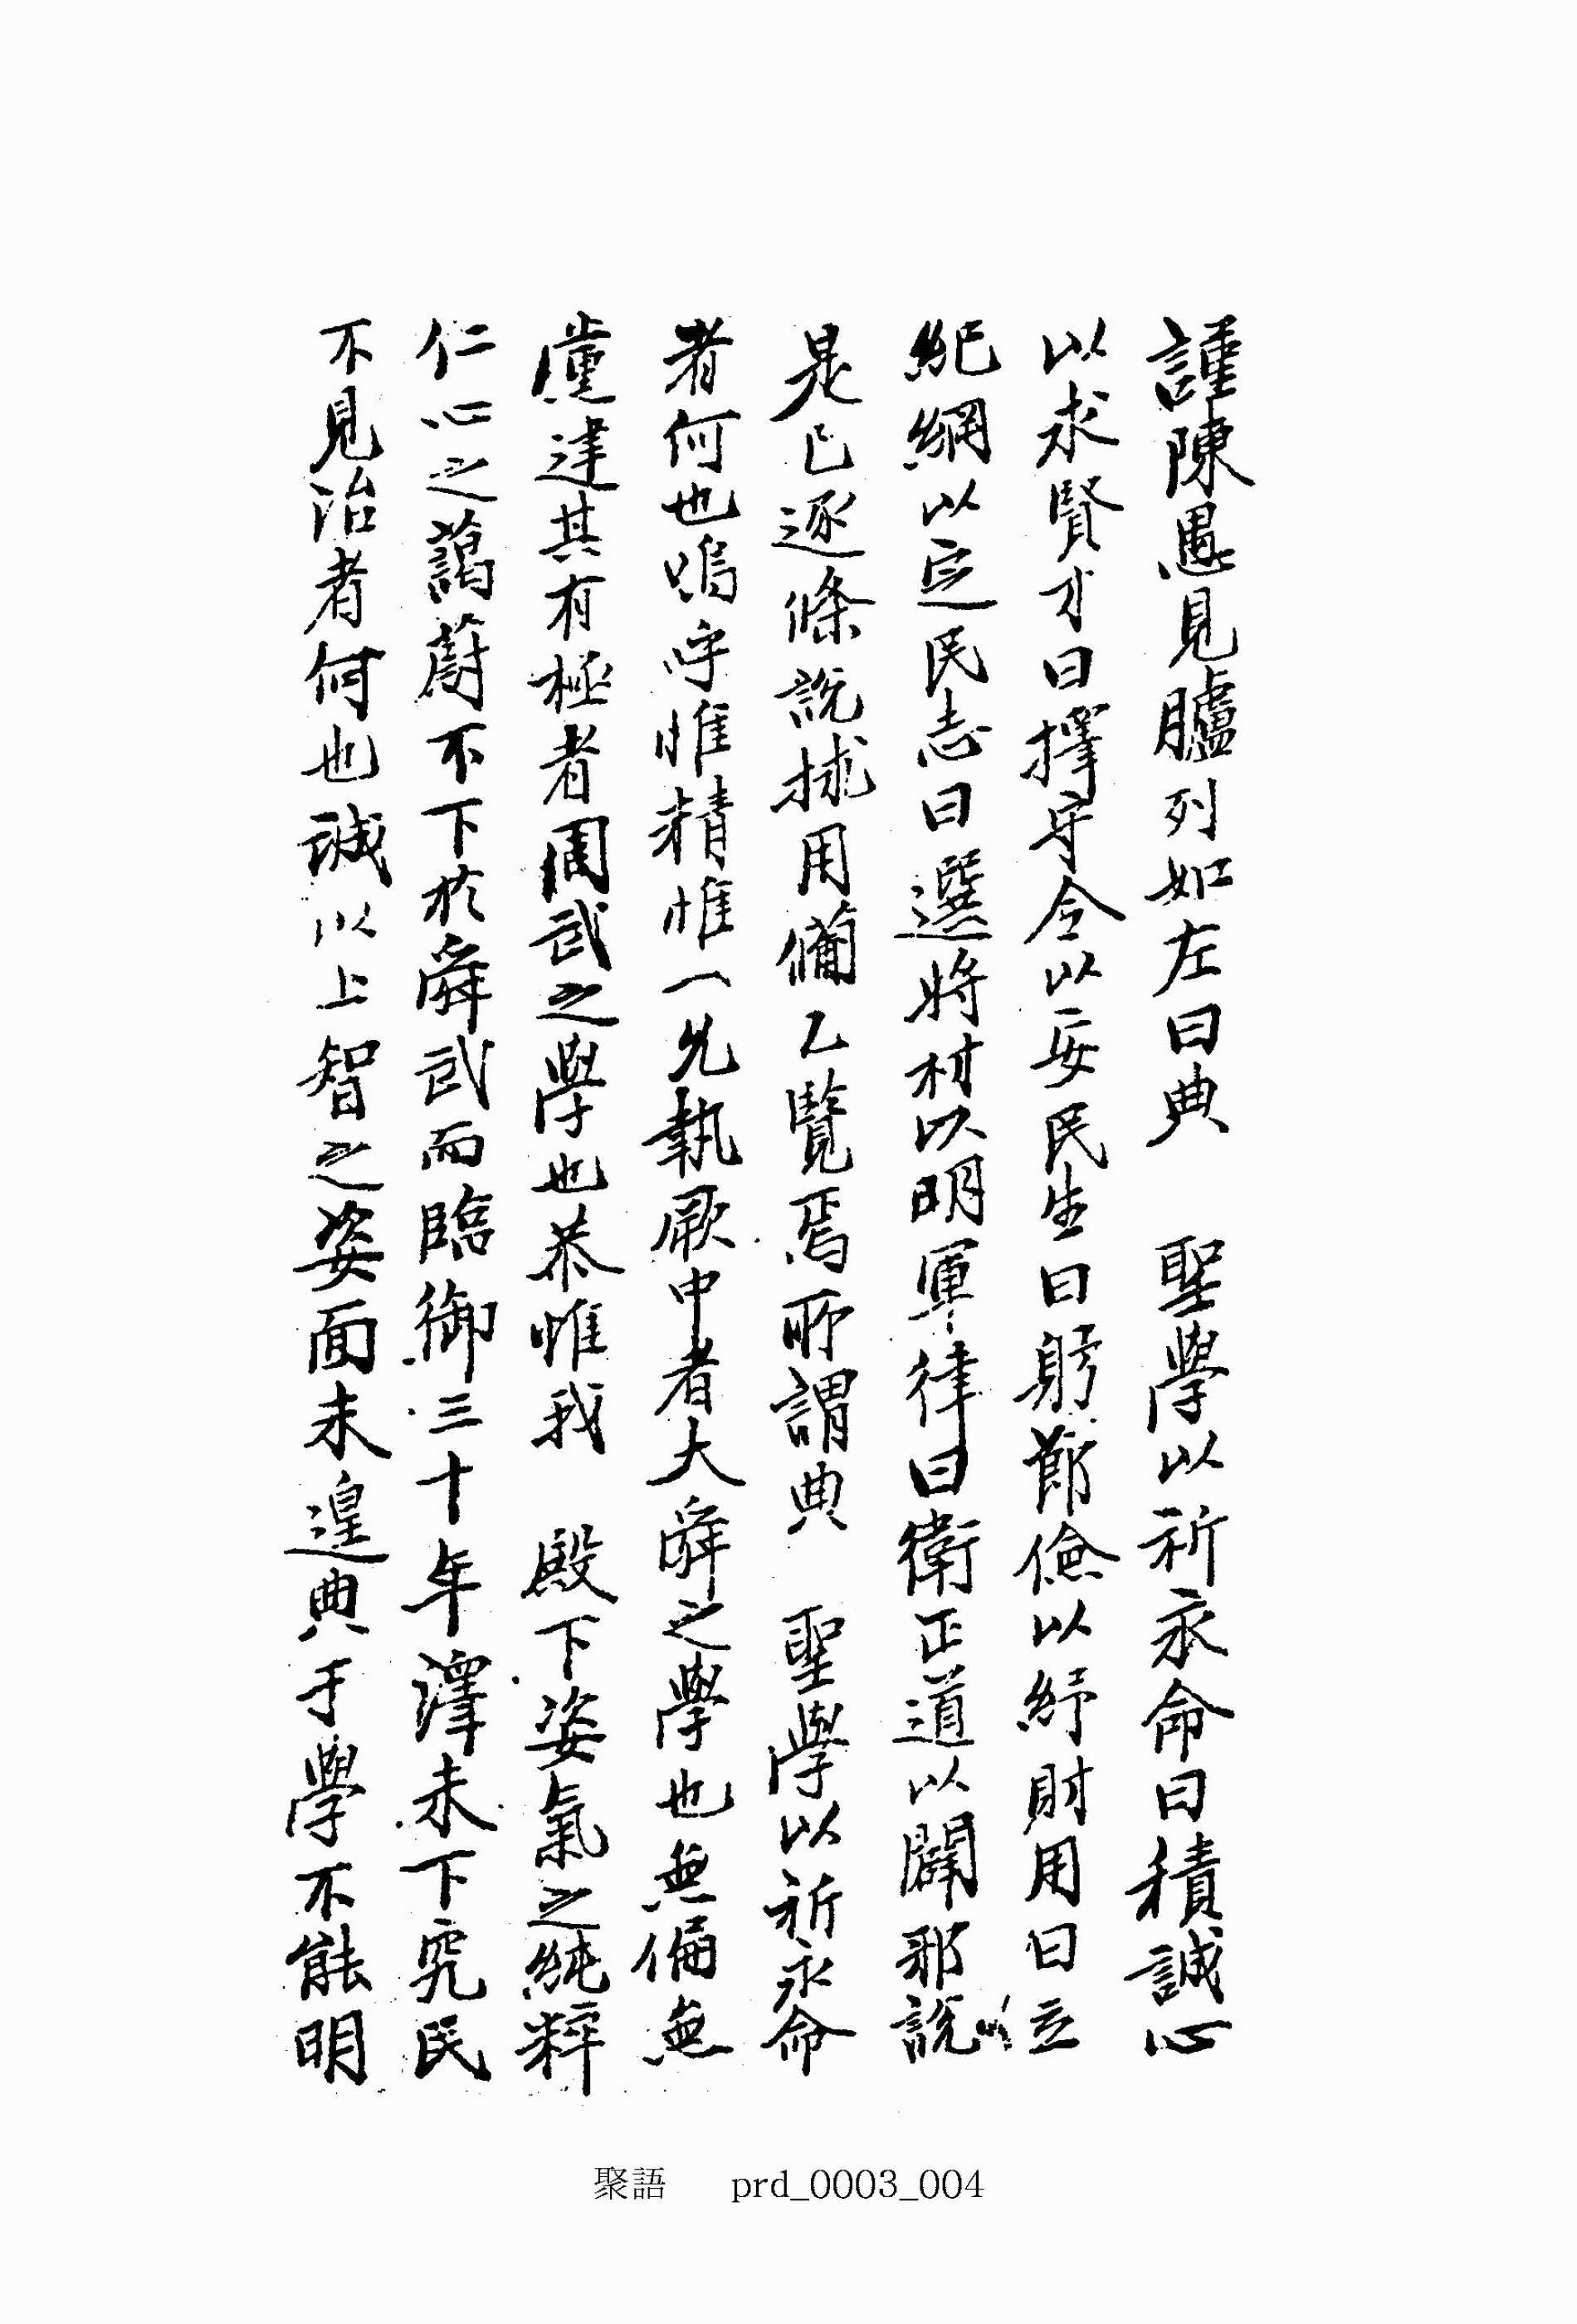 謹陳愚見臚列如左曰典　聖學以祈永命曰積誠心
以求賢才曰擇守令以安民生曰躬節儉以紓財用曰立
紀綱以定民志曰選將材以明軍律曰衛正道以闢邪說
是已逐條說捄用備乙覽焉所謂典　聖學以祈永命
者何也嗚呼惟精惟一允執厥中者大舜之學也無偏無
黨建其有極者周武之學也恭惟我　殿下姿氣之純粹
仁心之藹蔚不下於舜武而臨御三十年澤未下究民
不見治者何也誠以上智之姿面未遑典于學不能明
聚語　prd_0003_004